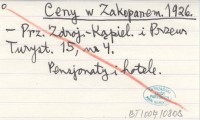 Ceny w Zakopanem. 1926.
— Prz. Zdroj.-Kąpiel. i Przew.
Turyst. 15, nr 4.
Pensjonaty i hotele.
BT1004/0803